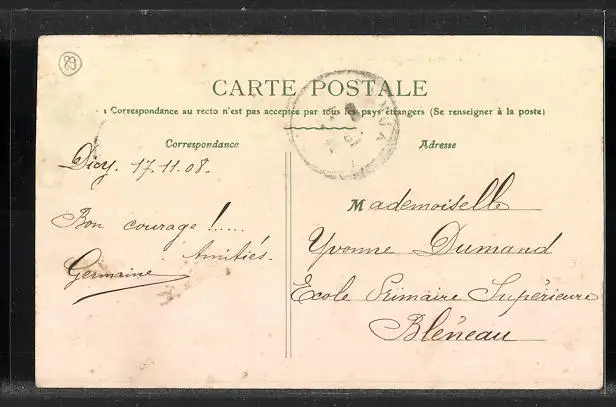 89
CARTE POSTALE
Correspondance au recto n'est pas acceptée par tous les pays étrangers (Se renseigner à la poste)
Correspondance
Dicy. 17.11.08.
Bon courage !.....
Amitiés.
Germaine
Adresse
Mademoiselle
Yvonne Dumand
Ecole Primaire Supérieure
Bléneau